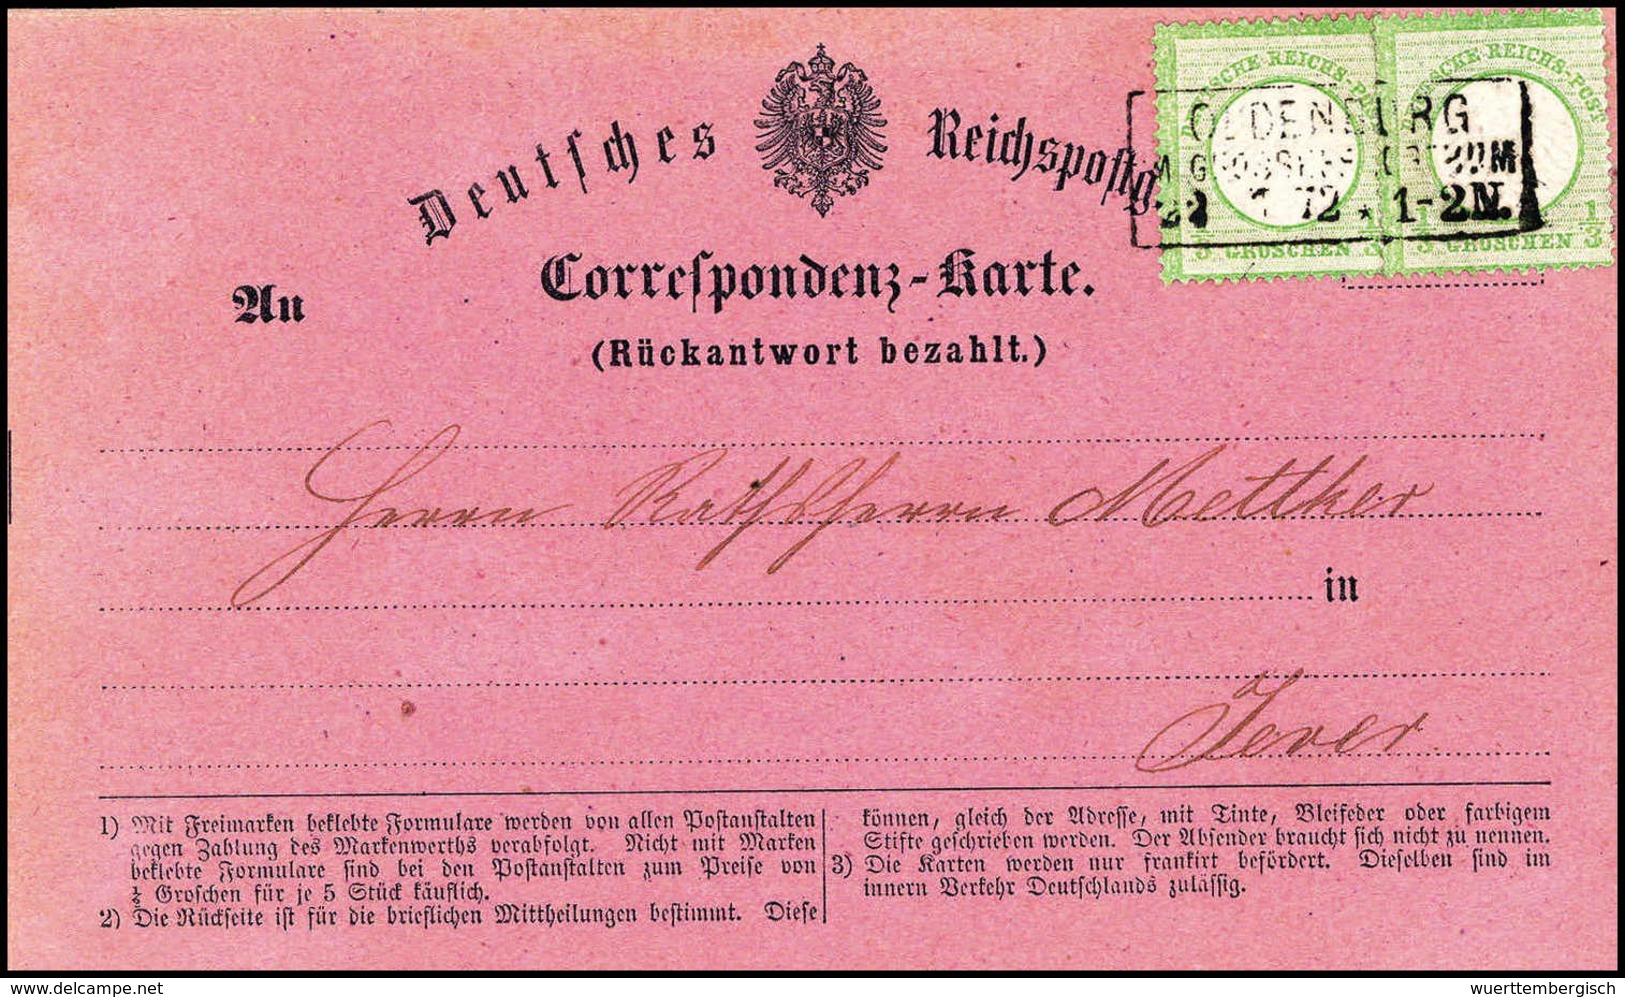 Deutsches Reichspostg
Correspondenz-Karte.
(Rückantwort bezahlt.)
An
REICHS-POST
1/3 GROSCHEN 1/3
OLDENBURG
72 * 1-2N.
Herrn Rathsherrn Mettker
in
Jever
1) Mit Freimarken beklebte Formulare werden von allen Postanstalten
gegen Zahlung des Markenwerths verabfolgt. Nicht mit Marken
beklebte Formulare sind bei den Postanstalten zum Preise von
½ Groschen für je 5 Stück käuflich.
2) Die Rückseite ist für die brieflichen Mittheilungen bestimmt. Diese
können, gleich der Adresse, mit Tinte, Bleifeder oder farbigem
Stifte geschrieben werden. Der Absender braucht sich nicht zu nennen.
3) Die Karten werden nur frankirt befördert. Dieselben sind im
innern Verkehr Deutschlands zulässig.
delcampe.net
wuerttembergisch